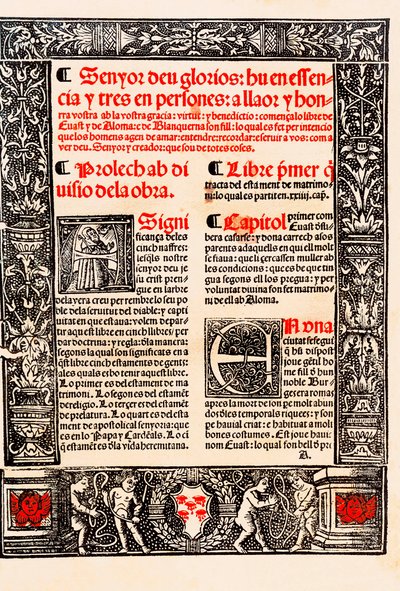 ¶ Senyor deu glorios: hu en essen-
cia y tres en persones: a llaor y hon-
rra vostra ab la vostra gracia: virtut: y benedictio: començalo libre de
Euast y de Aloma: e de Blanquerna son fill: lo qual es fet per intencio
que los homens agen de amar: entendre: recordar: e seruir a vos: com a
ver deu. Senyor y creador: que sou de totes coses.
¶ Prolech ab di
uisio dela obra.
Signi
ficança de les
cinch naffres:
les q̃ls nostre
senyor deu je
su crist pren-
gue en larbre
dela vera creu per rembre lo seu po
ble dela seruitut del diable: y capti
uitat en que estaua: volem depar-
tir aquest libre en cinch libres: per
dar doctrina: y regla: d̃la manera:
segons la qual son significats en a
q̃st libre cinch estaments de gents:
ales quals es bo tenir aquest libre.
Lo primer es del estament de ma
trimoni. Lo segon es del estamẽt
de religio. Lo tercer es del estamẽt
de prelatura. Lo quart es del esta
ment de apostolical senyoria: que
es en lo Papa y Cardẽals. Lo ci
q̃ estamẽt es d̃la vida heremitana.
¶ Libre p̃mer q̃
tracta del estament de matrimo-
ni: lo qual es partit en .xxiiij. cap̃.
¶ Capitol primer com
Euast d̃lli-
bera casarse: y dona carrech a sos
parents adaquells en qui ell molt
se fiaua: quell çercassen muller ab
les condicions: que es be que tin
gua segons ell los pregua: y per
voluntat diuina son fet matrimo
ni de ell ab Aloma.
EN vna
ciutat se seguí
q̃ hũ dispost
joue gẽtil ho
me fill d̃ hun
noble Bur-
ges era romas
apres la mort de son pe molt abun
dos d̃les temporals riquees: y son
de hauial criat: e habituat a molt
bones costumes. Est joue hauí
nom Euast: lo qual fon bell d̃ pre
A.